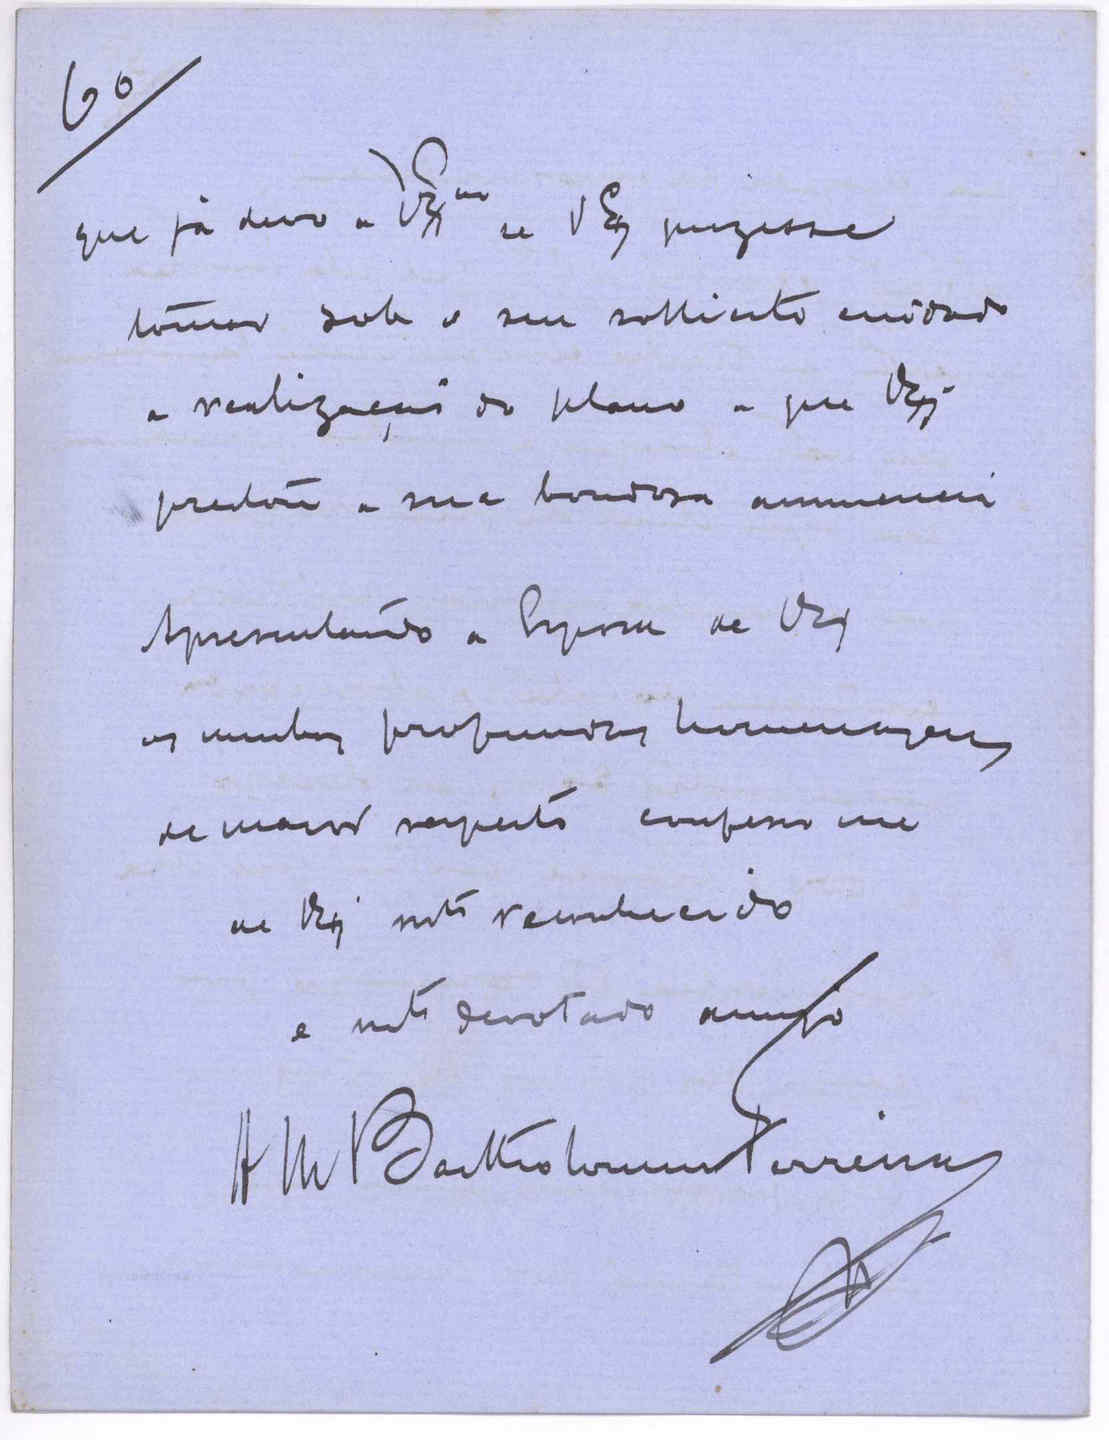 60
que já devo a VExcia se VEx quizesse
tomar sob o seu sollicito cuidado
a realização do plano a que VEx
prestou a sua bondosa annuencia
Apresentando a Esposa de VEx
as minhas profundas homenagens
de maior respeito confesso me
de VEx mto reconhecido
e mto devotado amigo
A M Bartholomeu Ferreira